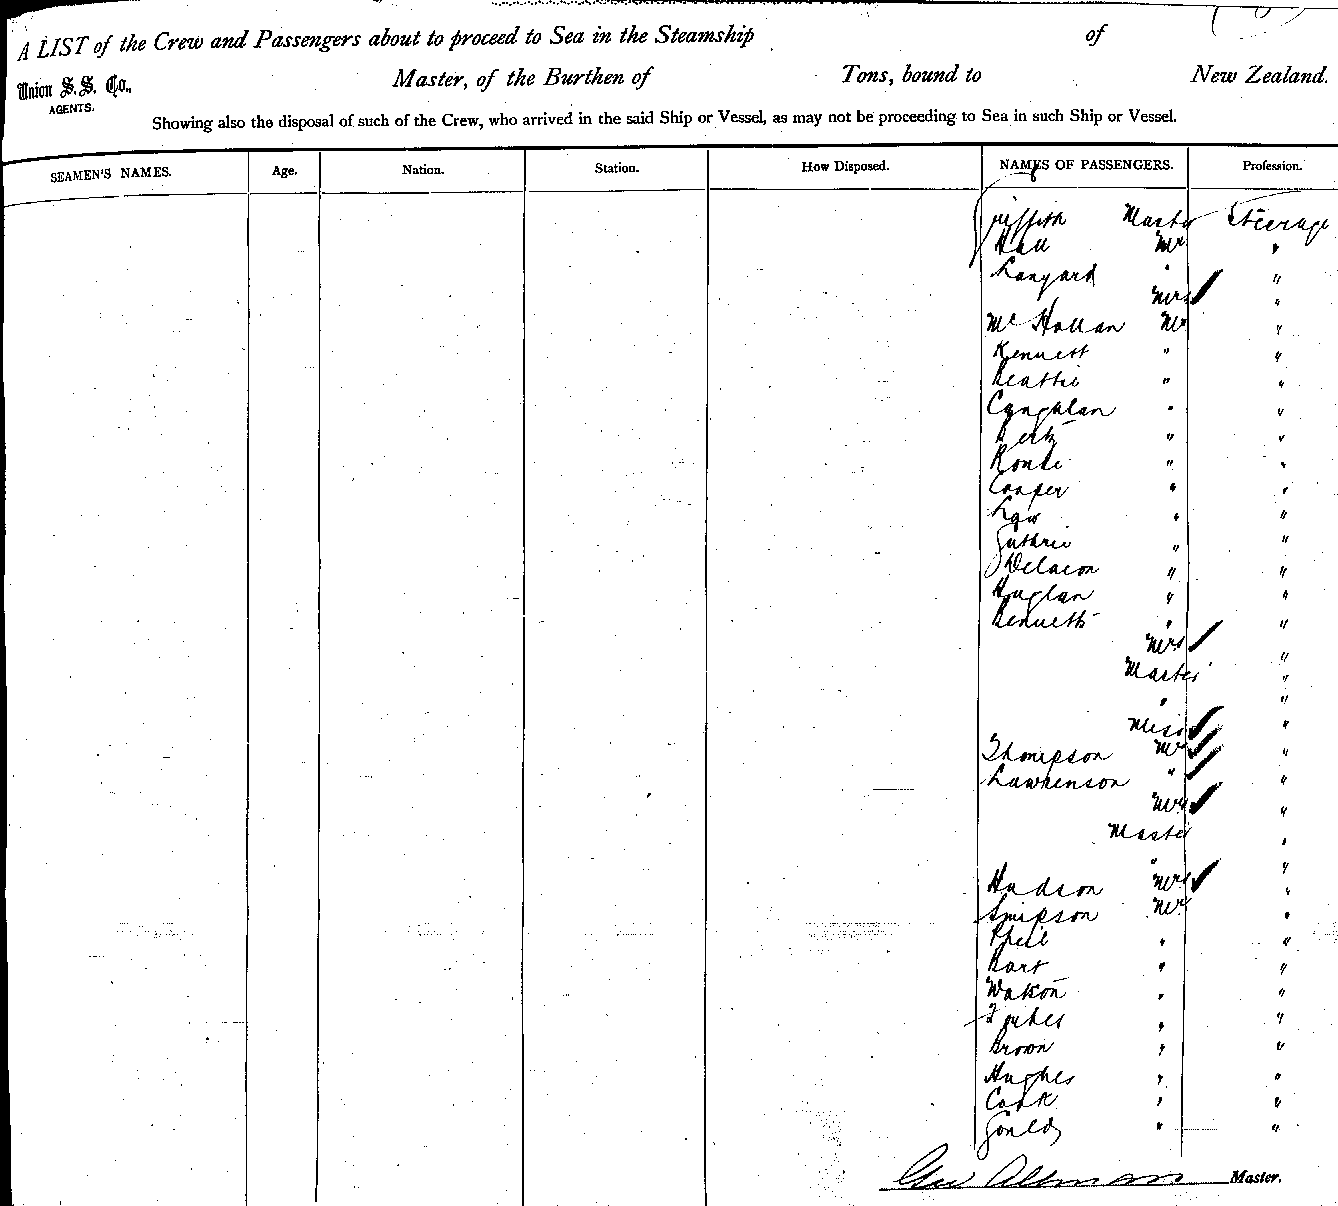 A LIST of the Crew and Passengers about to proceed to Sea in the Steamship of
Union S.S. Co., Master, of the Burthen of Tons, bound to New Zealand.
AGENTS.
Showing also the disposal of such of the Crew, who arrived in the said Ship or Vessel, as may not be proceeding to Sea in such Ship or Vessel.
SEAMEN'S NAMES. Age. Nation. Station. How Disposed. NAMES OF PASSENGERS. Profession.
Griffith Master Steerage
Hall Mr "
Lanyard " "
Mrs "
Mr "
Kennett " "
Beattie " "
Coughlan " "
" "
" "
Cooper " "
Law " "
Guthrie " "
" "
" "
Bennett " "
Mrs "
Master "
" "
Miss "
Thompson Mr "
Lawrenson " "
Mrs "
Master "
" "
Hudson Mrs "
Simpson Mr "
" "
Bart " "
Watson " "
Forbes " "
Brown " "
Hughes " "
Cook " "
Gould " "
Master.